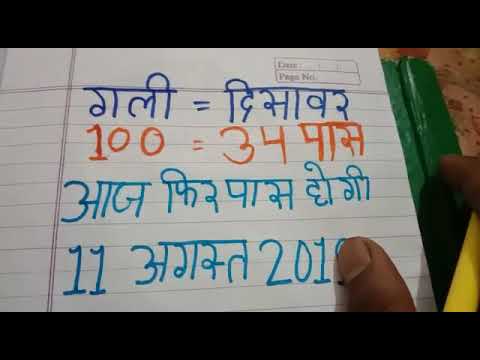 Date:
Page No.
गली = दिसावर
100 = 34 पास
आज फिर पास होगी
11 अगस्त